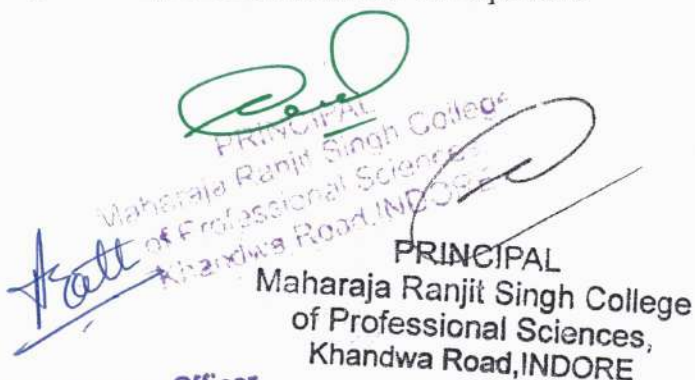 PRINCIPAL
Maharaja Ranjit Singh College
of Professional Sciences
Khandwa Road, INDORE
PRINCIPAL
Maharaja Ranjit Singh College
of Professional Sciences,
Khandwa Road,INDORE
Officer